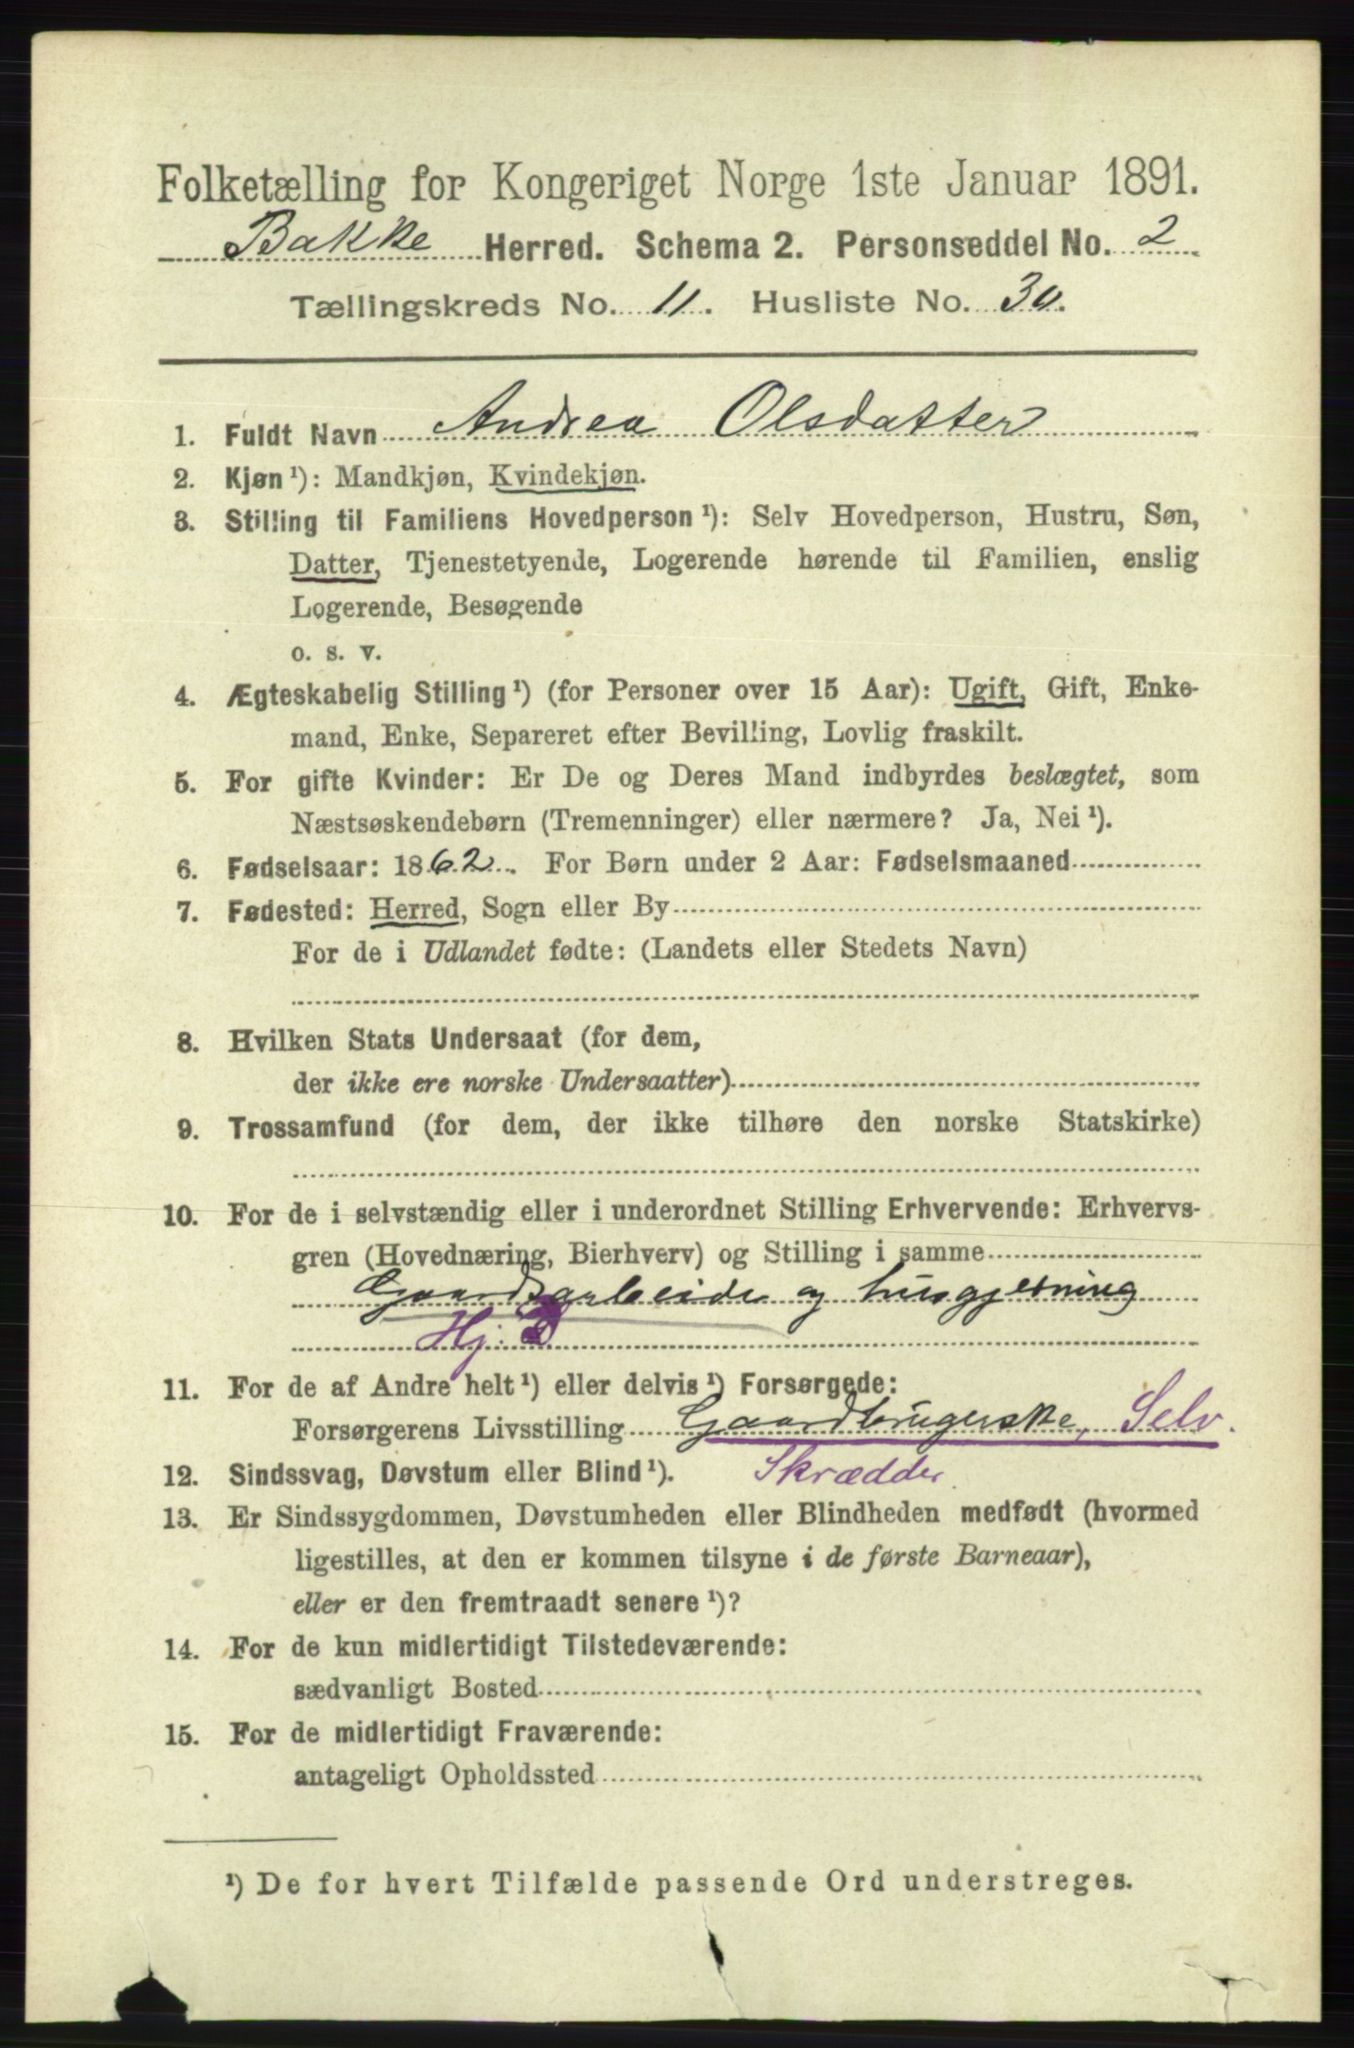 Folketælling for Kongeriget Norge 1ste Januar 1891.
Bakke Herred. Schema 2. Personseddel No. 2
Tællingskreds No. 11. Husliste No. 30.
1. Fuldt Navn Andrea Olsdatter
2. Kjøn ¹): Mandkjøn, Kvindekjøn.
3. Stilling til Familiens Hovedperson ¹): Selv Hovedperson, Hustru, Søn,
Datter, Tjenestetyende, Logerende hørende til Familien, enslig
Logerende, Besøgende
o. s. v.
4. Ægteskabelig Stilling ¹) (for Personer over 15 Aar): Ugift, Gift, Enke-
mand, Enke, Separeret efter Bevilling, Lovlig fraskilt.
5. For gifte Kvinder: Er De og Deres Mand indbyrdes beslægtet, som
Næstsøskendebørn (Tremenninger) eller nærmere? Ja, Nei ¹).
6. Fødselsaar: 1862. For Børn under 2 Aar: Fødselsmaaned
7. Fødested: Herred, Sogn eller By
For de i Udlandet fødte: (Landets eller Stedets Navn)
8. Hvilken Stats Undersaat (for dem,
der ikke ere norske Undersaatter)
9. Trossamfund (for dem, der ikke tilhøre den norske Statskirke)
10. For de i selvstændig eller i underordnet Stilling Erhvervende: Erhvervs-
gren (Hovednæring, Bierhverv) og Stilling i samme
Gaardsarbeide og husgjerning
Hj:
11. For de af Andre helt ¹) eller delvis ¹) Forsørgede:
Forsørgerens Livsstilling Gaardbrugerske, Selv.
12. Sindssvag, Døvstum eller Blind ¹). Skrædder.
13. Er Sindssygdommen, Døvstumheden eller Blindheden medfødt (hvormed
ligestilles, at den er kommen tilsyne i de første Barneaar),
eller er den fremtraadt senere ¹)?
14. For de kun midlertidigt Tilstedeværende:
sædvanligt Bosted
15. For de midlertidigt Fraværende:
antageligt Opholdssted
¹) De for hvert Tilfælde passende Ord understreges.